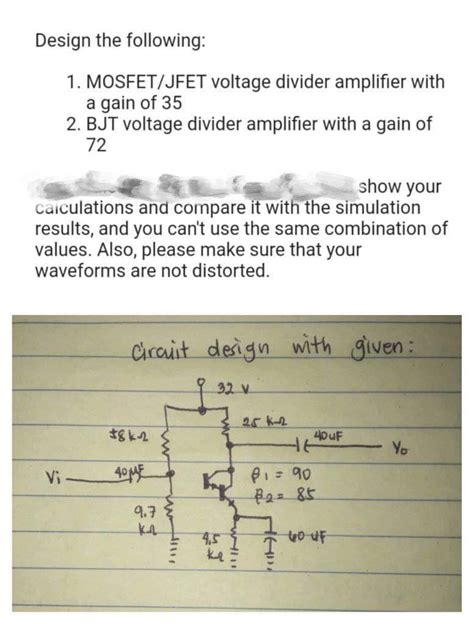 Design the following:
1. MOSFET/JFET voltage divider amplifier with
a gain of 35
2. BJT voltage divider amplifier with a gain of
72
show your
calculations and compare it with the simulation
results, and you can't use the same combination of
values. Also, please make sure that your
waveforms are not distorted.
Circuit design with given:
32 V
25 kΩ
40uF
Yo
Vi
40μF
β1 = 90
β2 = 85
9.7
kΩ
4.5
kΩ
60 uF